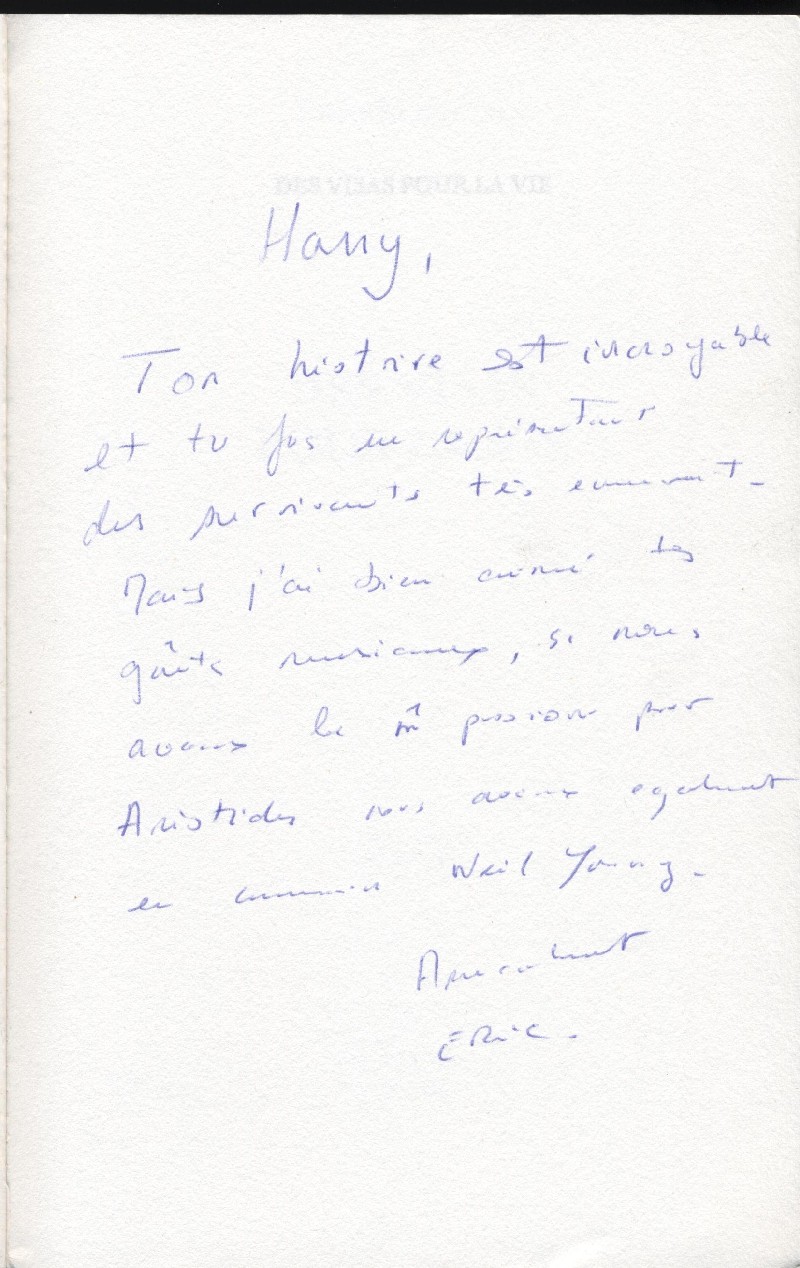 DES VISAS POUR LA VIE
Harry,
Ton histoire est incroyable
et tu fus un représentant
des survivants très émouvant.
Mais j'ai bien aimé tes
goûts musicaux, si nous
avons la m̂ passion pour
Aristides nous avons egalement
en commun Neil Young.
Amicalement
ERic.